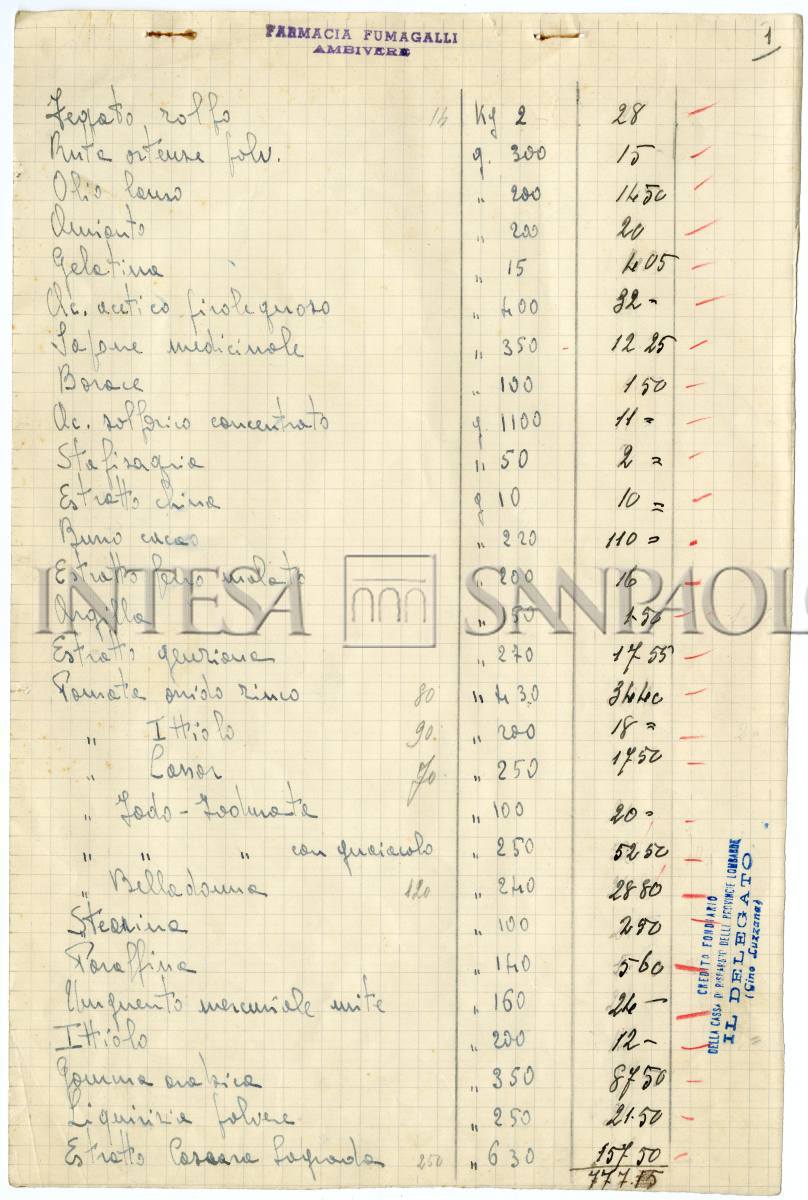 FARMACIA FUMAGALLI
AMBIVERE
1
Fegato zolfo 14 Kg 2 28
Ruta ortense polv. g. 300 15
Olio lauro " 200 14 50
Amianto " 200 20
Gelatina " 15 4 05
Ac. acetico pirolegnoso " 400 32 -
Sapone medicinale " 350 12 25
Borace " 100 1 50
Ac. solforico concentrato g. 1100 11 =
Stafisagria " 50 2 =
Estratto China g 10 10 =
Burro cacao " 220 110 =
Estratto ferro malato " 200 16
Argilla " 150 1.50
Estratto genziana " 270 17 55
Pomata ossido zinco 80 " 430 34 40
" Ittiolo 90. " 200 18 =
" 70 " 250 17 50
" Jodo-Jodurata " 100 20 -
" " " con guaiacolo " 250 52 50
" Belladonna 120 " 240 28 80
Stearina " 100 2 50
Paraffina " 140 5 60
Unguento mercuriale mite " 160 24 -
Ittiolo " 200 12 -
Gomma arabica " 350 87 50
Liquirizia polvere " 250 21.50
Estratto Cascara Sagrada 250 " 630 157 50
777.15
CREDITO FONDIARIO
DELLA CASSA DI RISPARMIO DELLE PROVINCIE LOMBARDE
IL DELEGATO
(Gino Luzzana)
INTESA SANPAOLO